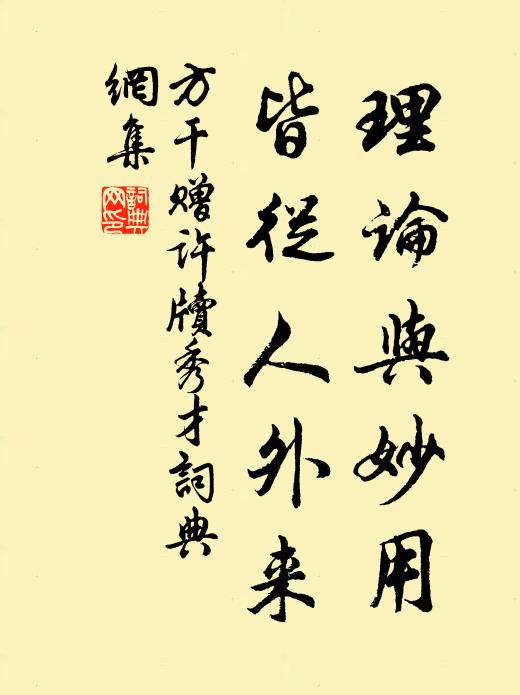 理論與妙用
皆從人外来
方干贈許牘秀才詞典
網集
詞典
网印